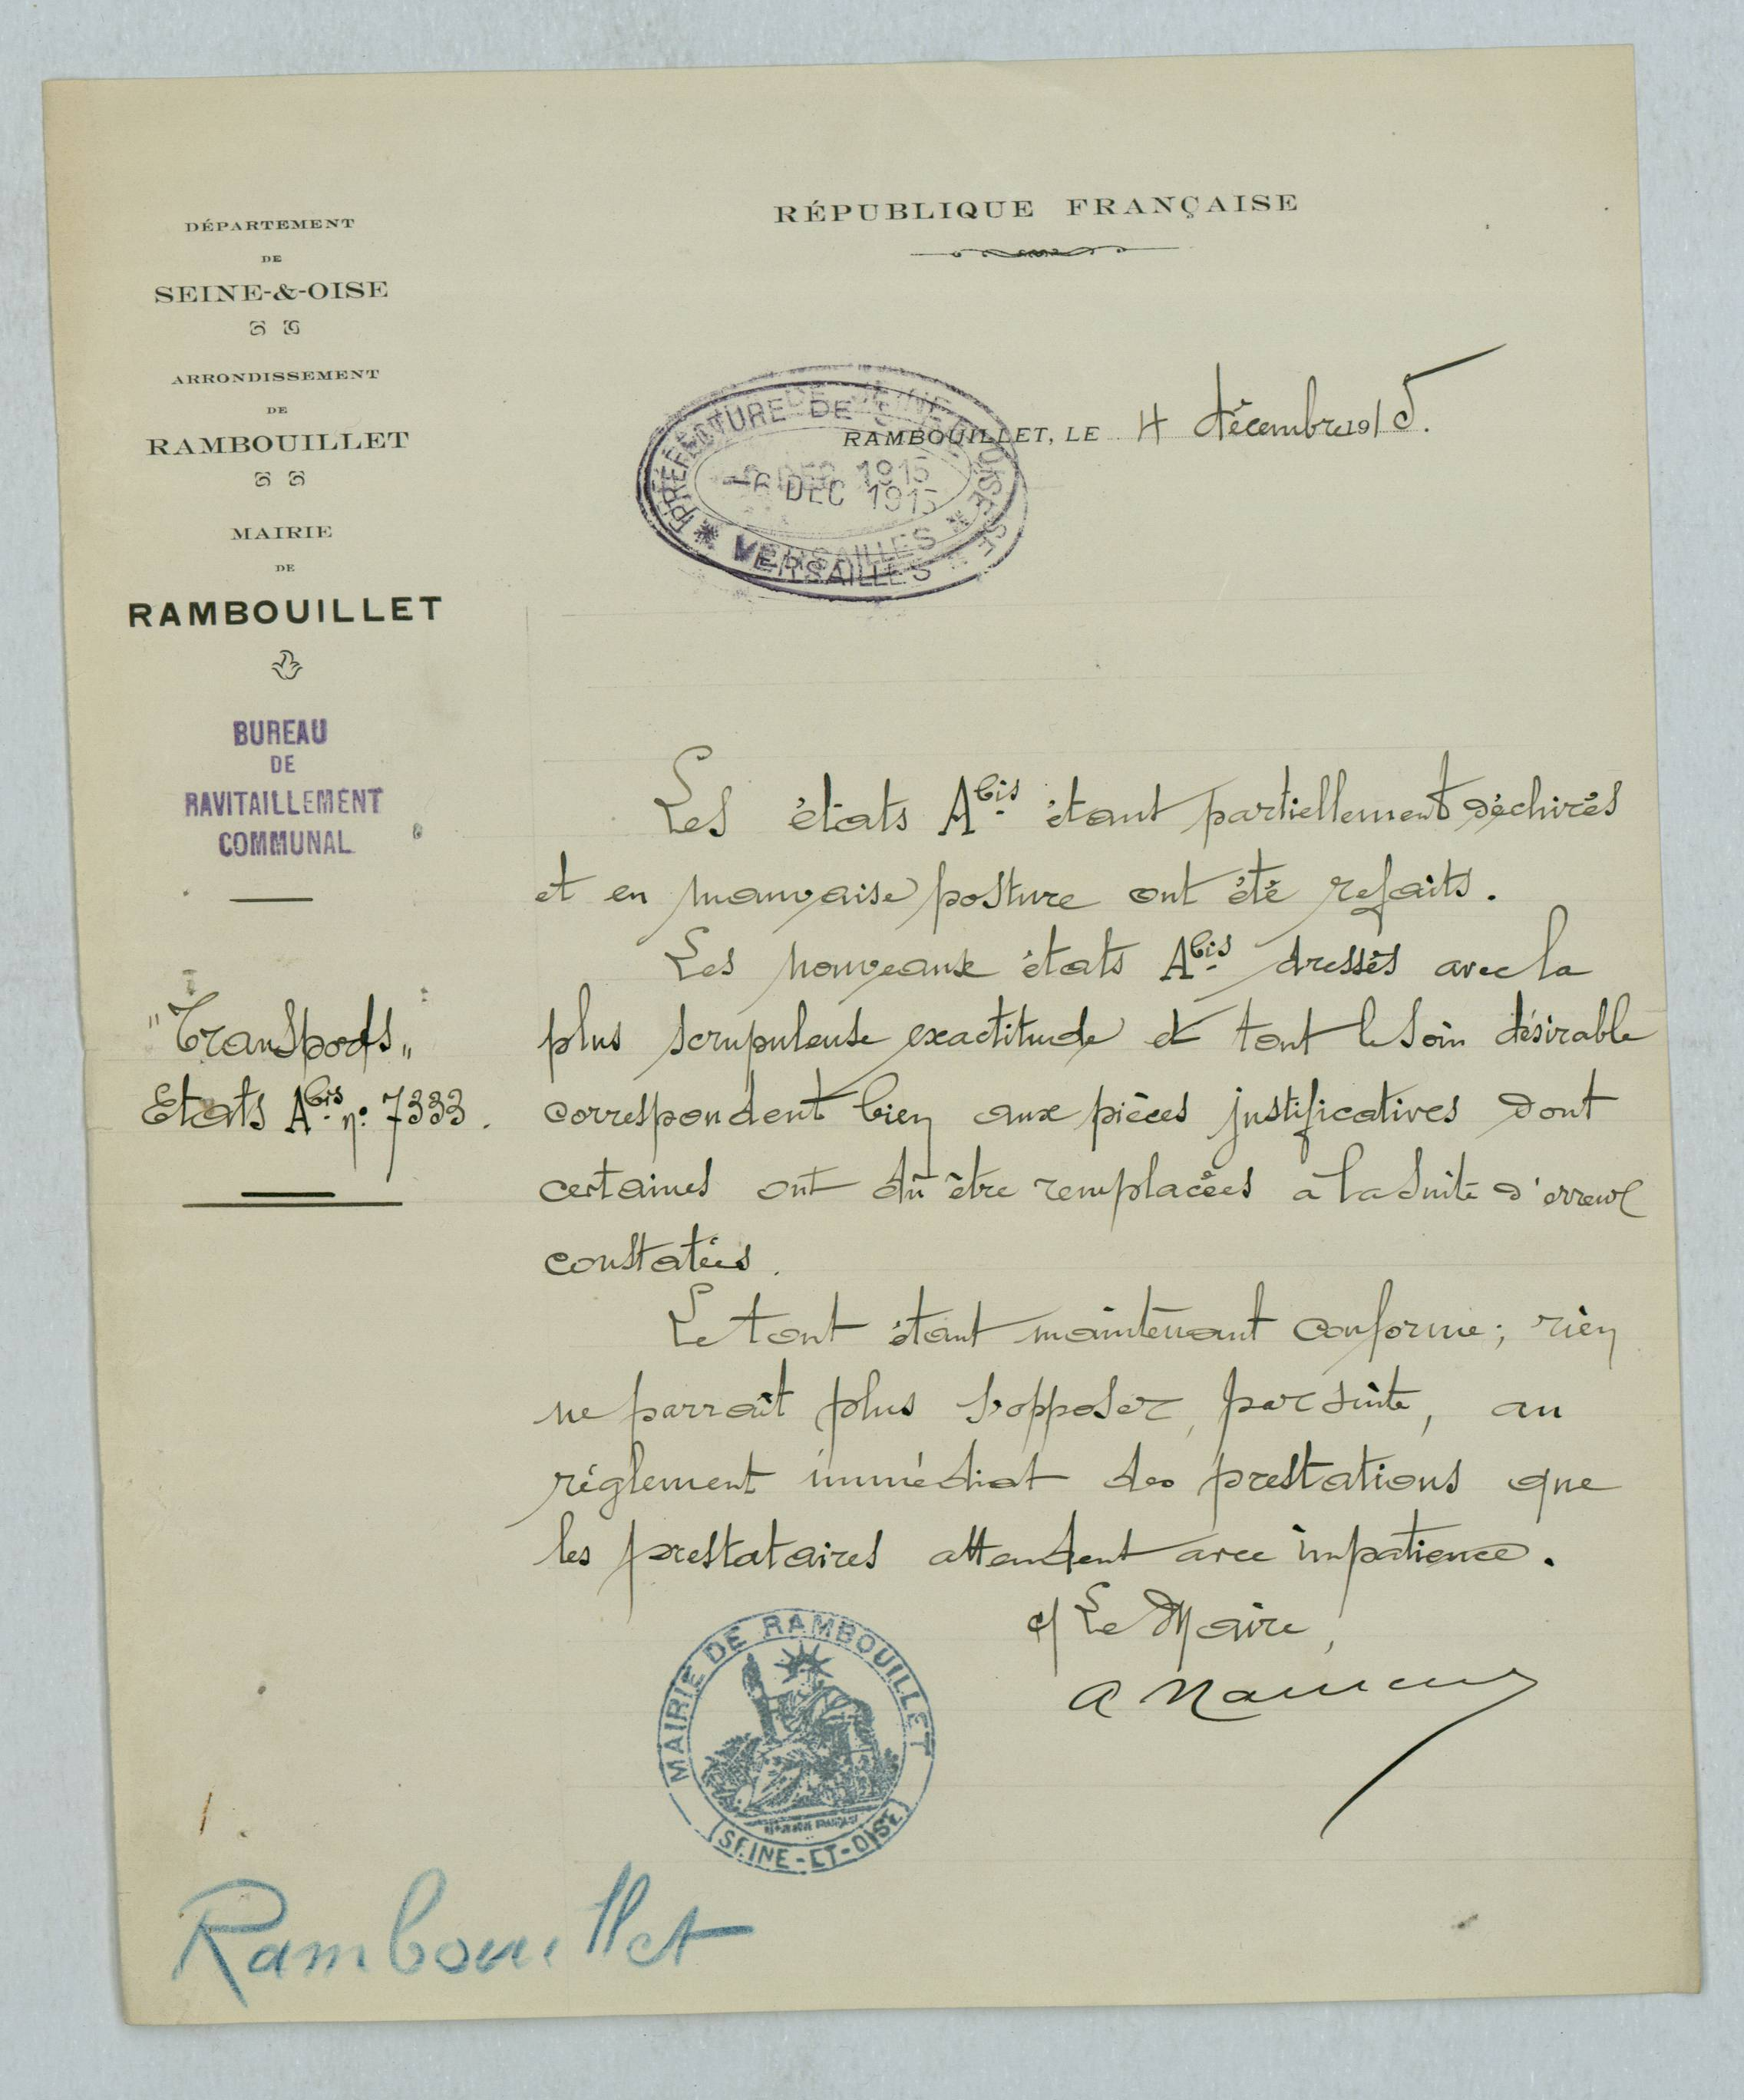 DÉPARTEMENT
DE
SEINE-&-OISE
ARRONDISSEMENT
DE
RAMBOUILLET
MAIRIE
DE
RAMBOUILLET
BUREAU
DE
RAVITAILLEMENT
COMMUNAL
"Transports"
Etats A bis n° 7333.
RÉPUBLIQUE FRANÇAISE
RAMBOUILLET, LE 4 décembre 1915.
PRÉFECTURE DE SEINE-ET-OISE
6 DEC 1915
VERSAILLES
Les états A bis étant partiellement déchirés
et en mauvaise posture ont été refaits.
Les nouveaux états A bis dressés avec la
plus scrupuleuse exactitude et tout le soin désirable
correspondent bien aux pièces justificatives dont
certaines ont dû être remplacées à la suite d'erreurs
constatées.
Le tout étant maintenant conforme; rien
ne parraît plus s'opposer, par suite, au
réglement immédiat des prestations que
les prestataires attendent avec impatience.
Le Maire,
MAIRIE DE RAMBOUILLET
SEINE-ET-OISE
Rambouillet